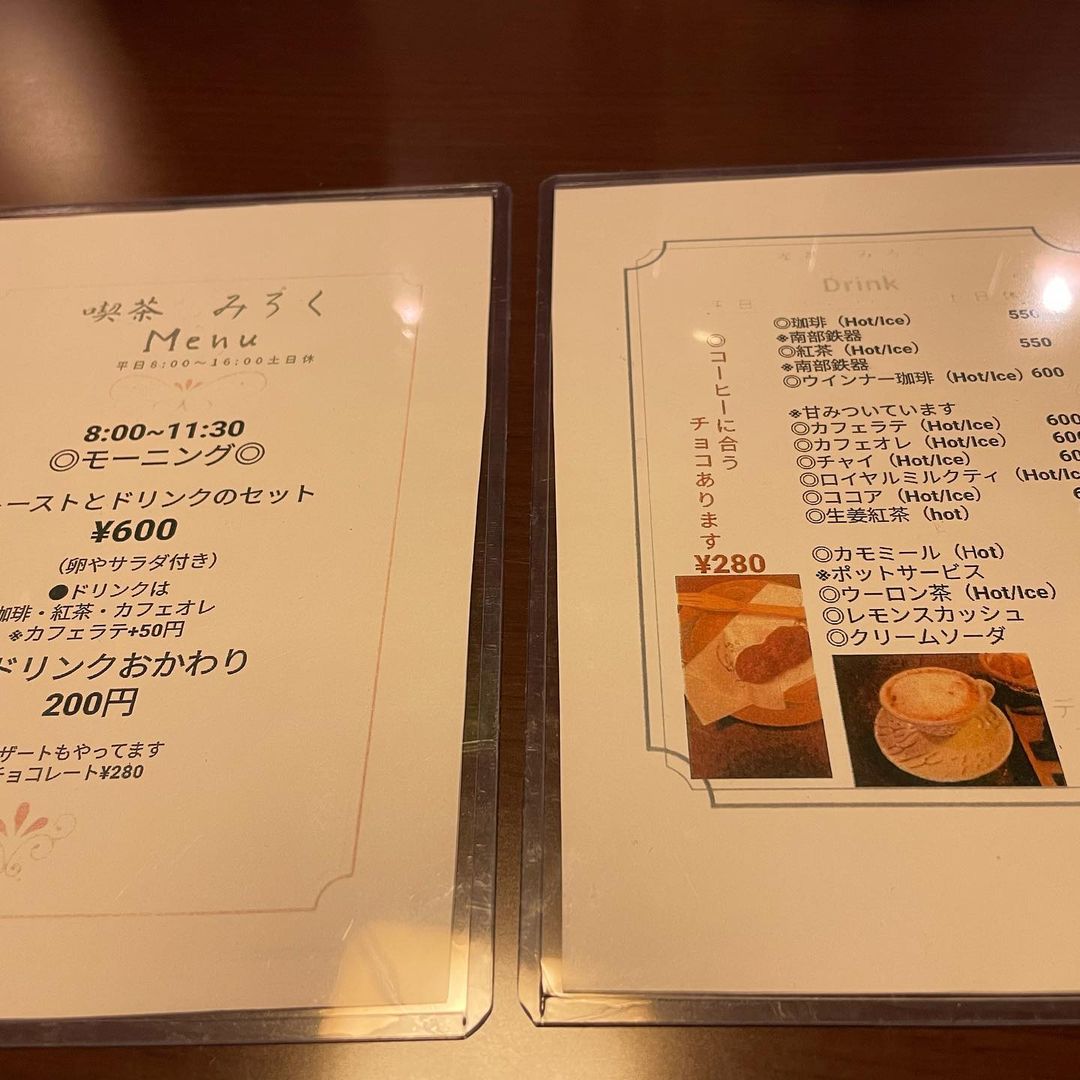 喫茶 みろく
Menu
平日8:00～16:00土日休
8:00~11:30
◎モーニング◎
ーストとドリンクのセット
¥600
（卵やサラダ付き）
●ドリンクは
珈琲・紅茶・カフェオレ
※カフェラテ+50円
ドリンクおかわり
200円
ザートもやってます
チョコレート¥280
喫茶 みろく
Drink
平日 土日休
◎珈琲（Hot/Ice） 550
※南部鉄器
◎紅茶（Hot/Ice） 550
※南部鉄器
◎ウインナー珈琲（Hot/Ice）600
※甘みついています
◎カフェラテ（Hot/Ice） 600
◎カフェオレ（Hot/Ice） 600
◎チャイ（Hot/Ice） 60
◎ロイヤルミルクティ（Hot/Ic
◎ココア（Hot/Ice） 6
◎生姜紅茶（hot）
◎カモミール（Hot）
※ポットサービス
◎ウーロン茶（Hot/Ice）
◎レモンスカッシュ
◎クリームソーダ
◎コーヒーに合う
チョコあります
¥280
デ